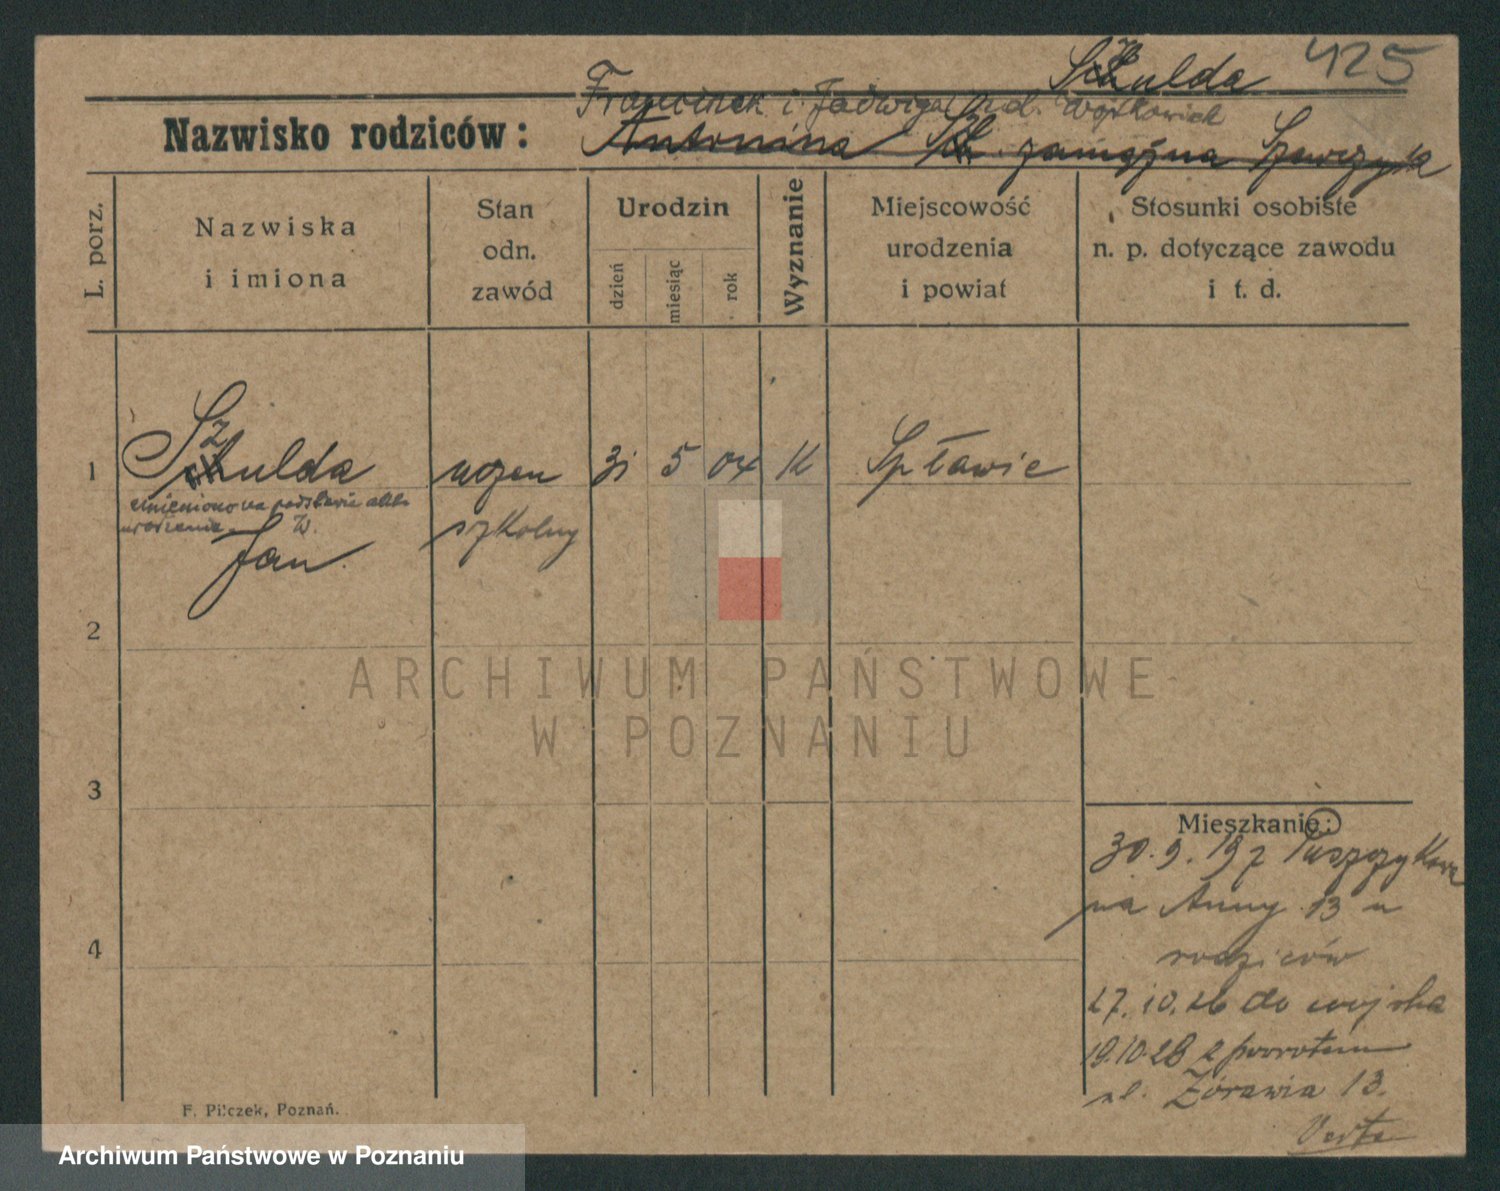 Szulda 425
Franciszek i Jadwiga rod. Wojtkowiak
Nazwisko rodziców: Antonina zamężna
L. porz.
Nazwiska
i imiona
Stan
odn.
zawód
Urodzin
dzień
miesiąc
rok
Wyznanie
Miejscowość
urodzenia
i powiat
Stosunki osobiste
n. p. dotyczące zawodu
i t. d.
1 Szulda woźny 31 5 04 K Spławie
zmieniono na podstawie aktu
urodzenia szkolny
Jan.
2
3
4
Mieszkanie:
30.9.19 z Puszczykowa
na Anny 13 u
rodziców
27.10.26 do wojska
19.10.28 z powrotem
ul. Żórawia 13.
Verte
F. Pilczek, Poznań.
ARCHIWUM PAŃSTWOWE
W POZNANIU
Archiwum Państwowe w Poznaniu